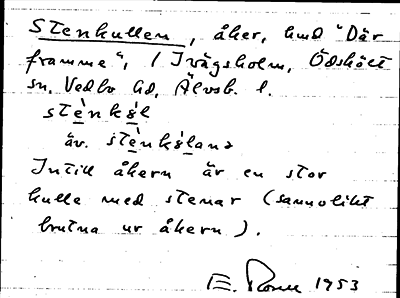 Stenkullen, åker, hmd "Där
framme", / Ivägsholm, Ödskölt
sn, Vedbo hd, Älvsb. l.
stènkə̀l
äv. stènkə̀lana
Intill åkern är en stor
kulle med stenar (sannolikt
brutna ur åkern).
E. 1953